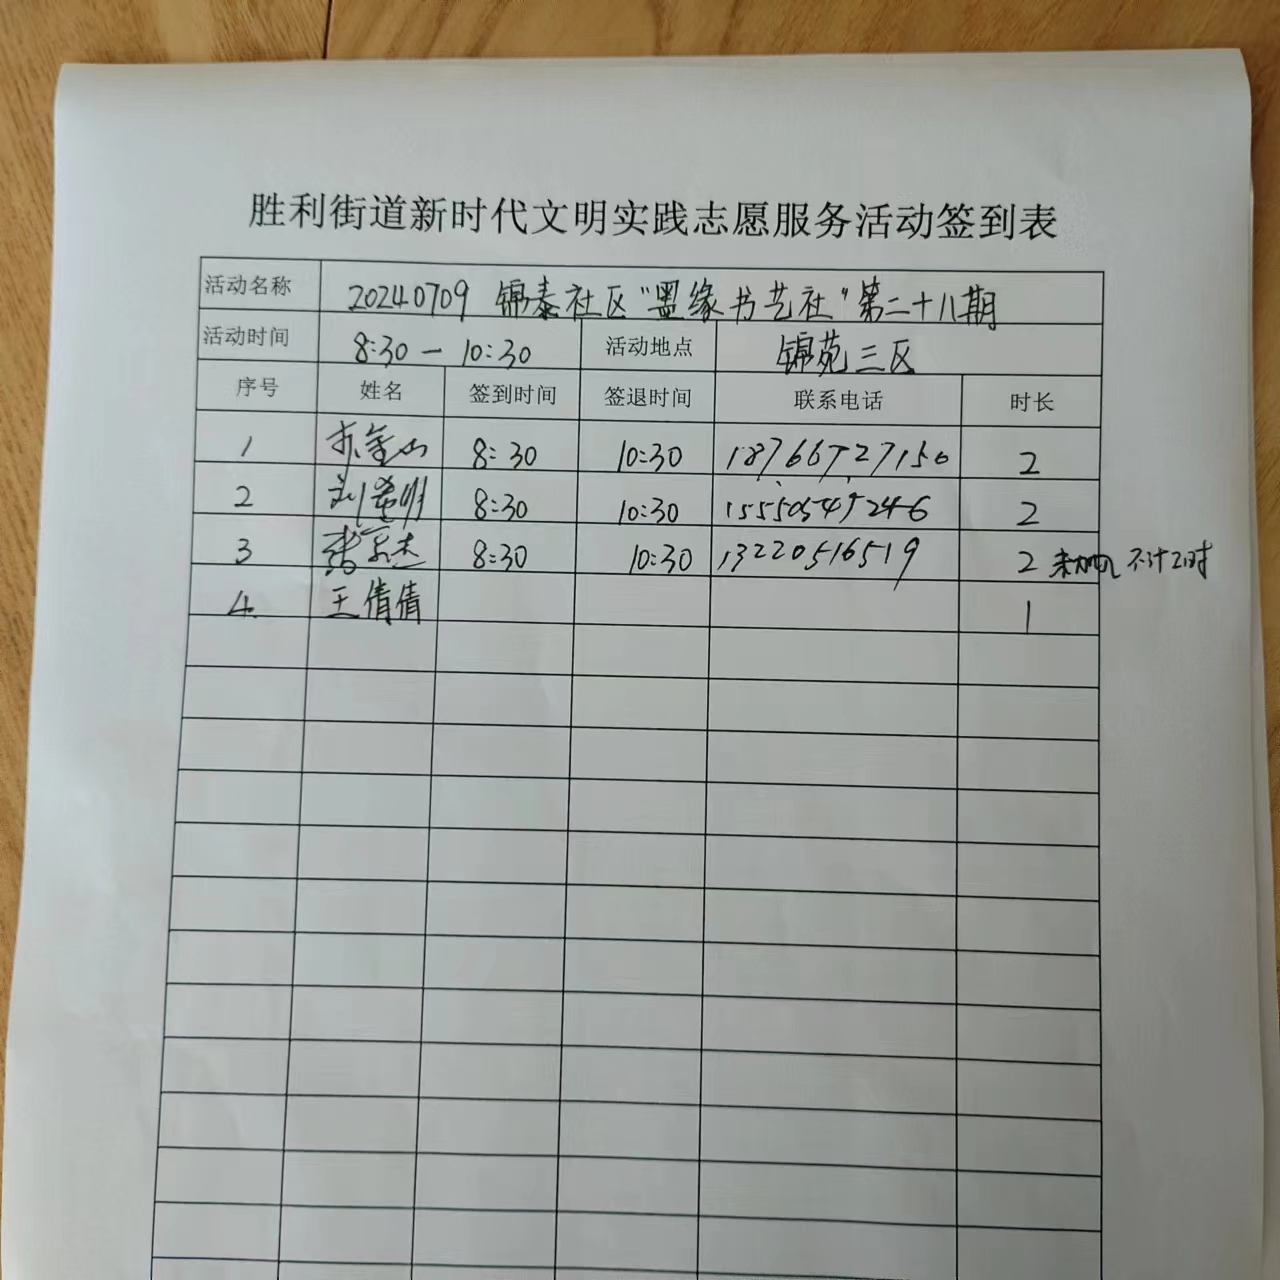 胜利街道新时代文明实践志愿服务活动签到表
活动名称 20240709 锦泰社区"墨缘书艺社"第二十八期
活动时间 8:30 — 10:30 活动地点 锦苑三区
序号 姓名 签到时间 签退时间 联系电话 时长
1 金山 8:30 10:30 18766727150 2
2 刘 明 8:30 10:30 15550549246 2
3 张 杰 8:30 10:30 13220516519 2 不计工时
4. 王倩倩 1